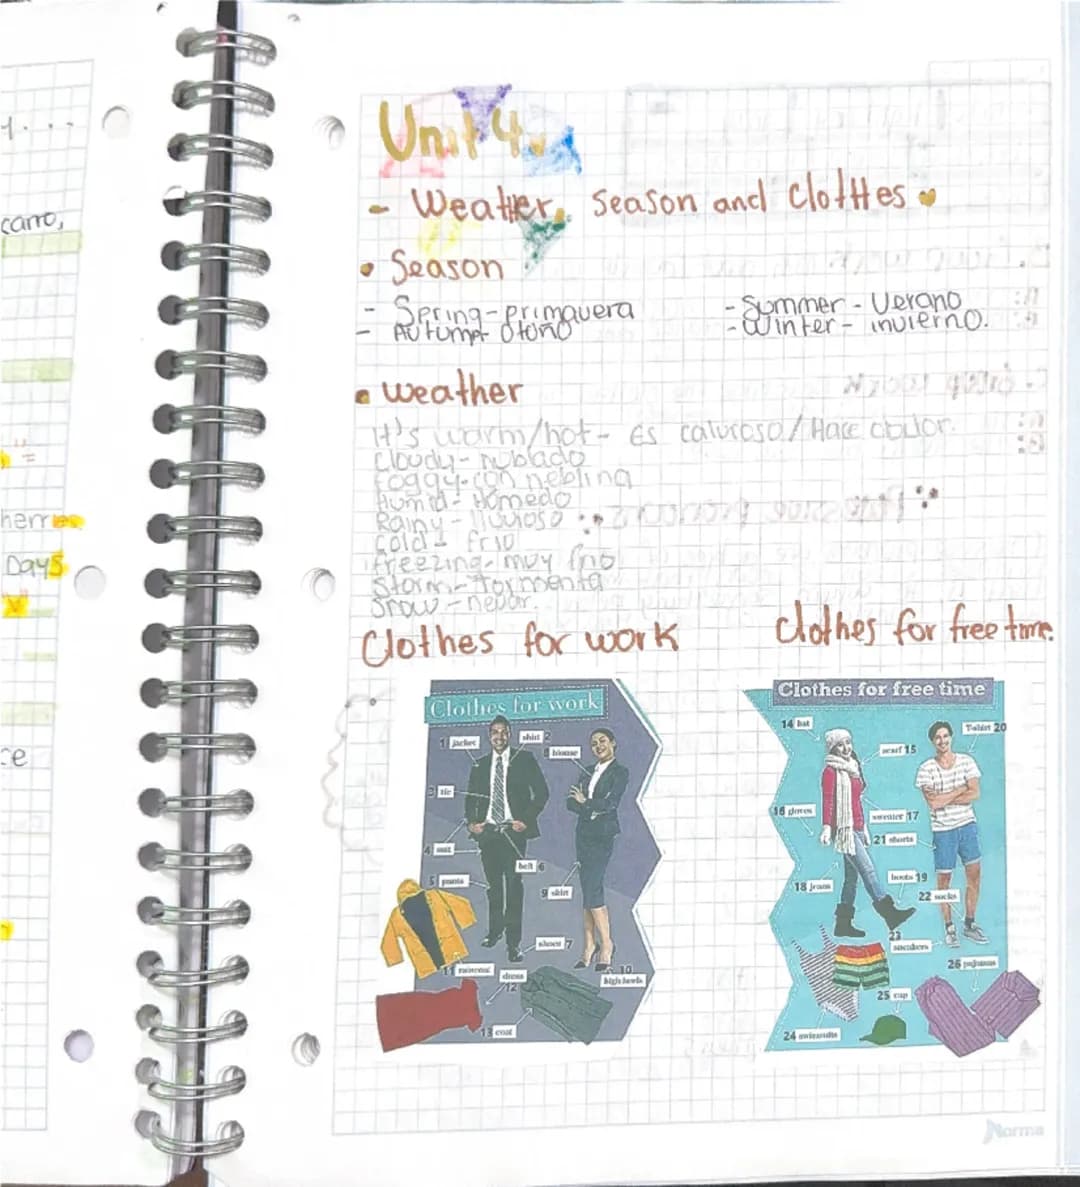 carro,
Days
Unit 4.
- Weather, Season and Clothes
• Season
- Spring - primavera
- Autumn - Otoño
- Summer - Verano
- Winter - invierno.
• weather
It's warm/hot - Es caluroso / Hace calor.
Cloudy - nublado
Foggy - con neblina
Humid - Húmedo
Rainy - lluvioso
Cold - frío
freezing - muy frio
Storm - Tormenta
Snow - nevar.
Clothes for work
Clothes for free time.
Clothes for work
1 jacket
shirt 2
8 blouse
3 tie
4 suit
belt 6
5 pants
9 skirt
shoes 7
11 raincoat
dress 12
10 high heels
13 coat
Clothes for free time
14 hat
T-shirt 20
scarf 15
16 gloves
sweater 17
21 shorts
18 jeans
boots 19
22 socks
23 sneakers
26 pajamas
25 cap
24 swimsuits
Norma